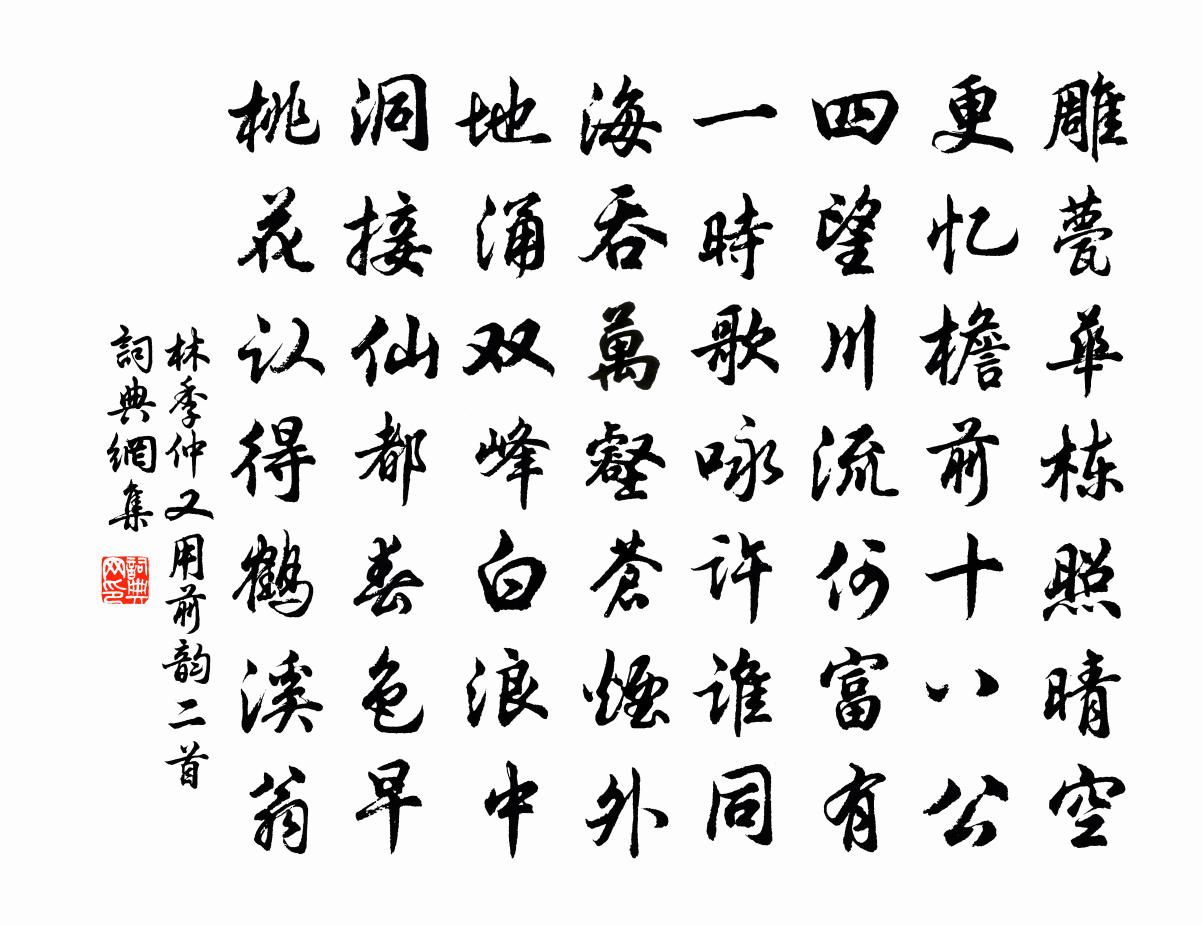 雕甍華栋照晴空
更忆檐前十八公
四望川流何富有
一時歌咏许谁同
海吞萬壑蒼煙外
地涌双峰白浪中
洞接仙都春色早
桃花认得鹤溪翁
林季仲又用前韵二首
詞典網集
詞典网印